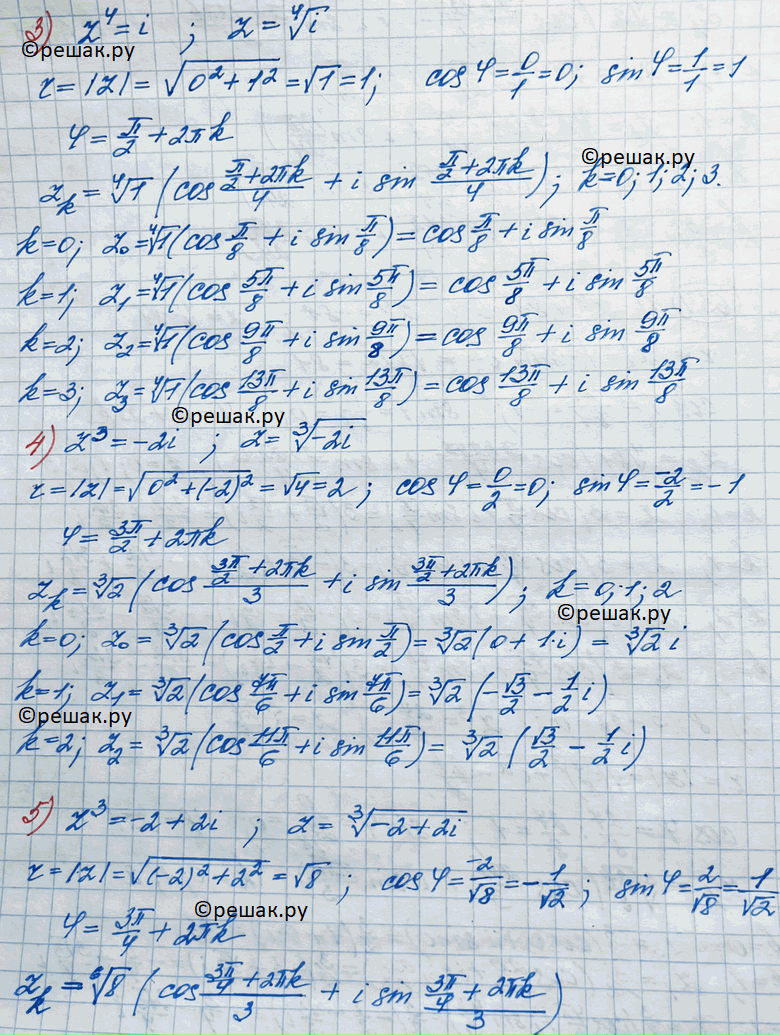 3) z⁴ = i ; z = ⁴√i
©решак.ру
r = |z| = √(0² + 1²) = √1 = 1; cos φ = 0/1 = 0; sin φ = 1/1 = 1
φ = π/2 + 2πk
©решак.ру
z_k = ⁴√1 (cos (π/2 + 2πk)/4 + i sin (π/2 + 2πk)/4); k = 0; 1; 2; 3.
k = 0; z₀ = ⁴√1 (cos π/8 + i sin π/8) = cos π/8 + i sin π/8
k = 1; z₁ = ⁴√1 (cos 5π/8 + i sin 5π/8) = cos 5π/8 + i sin 5π/8
k = 2; z₂ = ⁴√1 (cos 9π/8 + i sin 9π/8) = cos 9π/8 + i sin 9π/8
k = 3; z₃ = ⁴√1 (cos 13π/8 + i sin 13π/8) = cos 13π/8 + i sin 13π/8
©решак.ру
4) z³ = -2i ; z = ³√(-2i)
r = |z| = √(0² + (-2)²) = √4 = 2 ; cos φ = 0/2 = 0; sin φ = -2/2 = -1
φ = 3π/2 + 2πk
z_k = ³√2 (cos (3π/2 + 2πk)/3 + i sin (3π/2 + 2πk)/3); k = 0; 1; 2
©решак.ру
k = 0; z₀ = ³√2 (cos π/2 + i sin π/2) = ³√2 (0 + 1·i) = ³√2 i
k = 1; z₁ = ³√2 (cos 7π/6 + i sin 7π/6) = ³√2 (-√3/2 - 1/2 i)
©решак.ру
k = 2; z₂ = ³√2 (cos 11π/6 + i sin 11π/6) = ³√2 (√3/2 - 1/2 i)
5) z³ = -2 + 2i ; z = ³√(-2 + 2i)
r = |z| = √((-2)² + 2²) = √8 ; cos φ = -2/√8 = -1/√2 ; sin φ = 2/√8 = 1/√2
©решак.ру
φ = 3π/4 + 2πk
z_k = ⁶√8 (cos (3π/4 + 2πk)/3 + i sin (3π/4 + 2πk)/3)